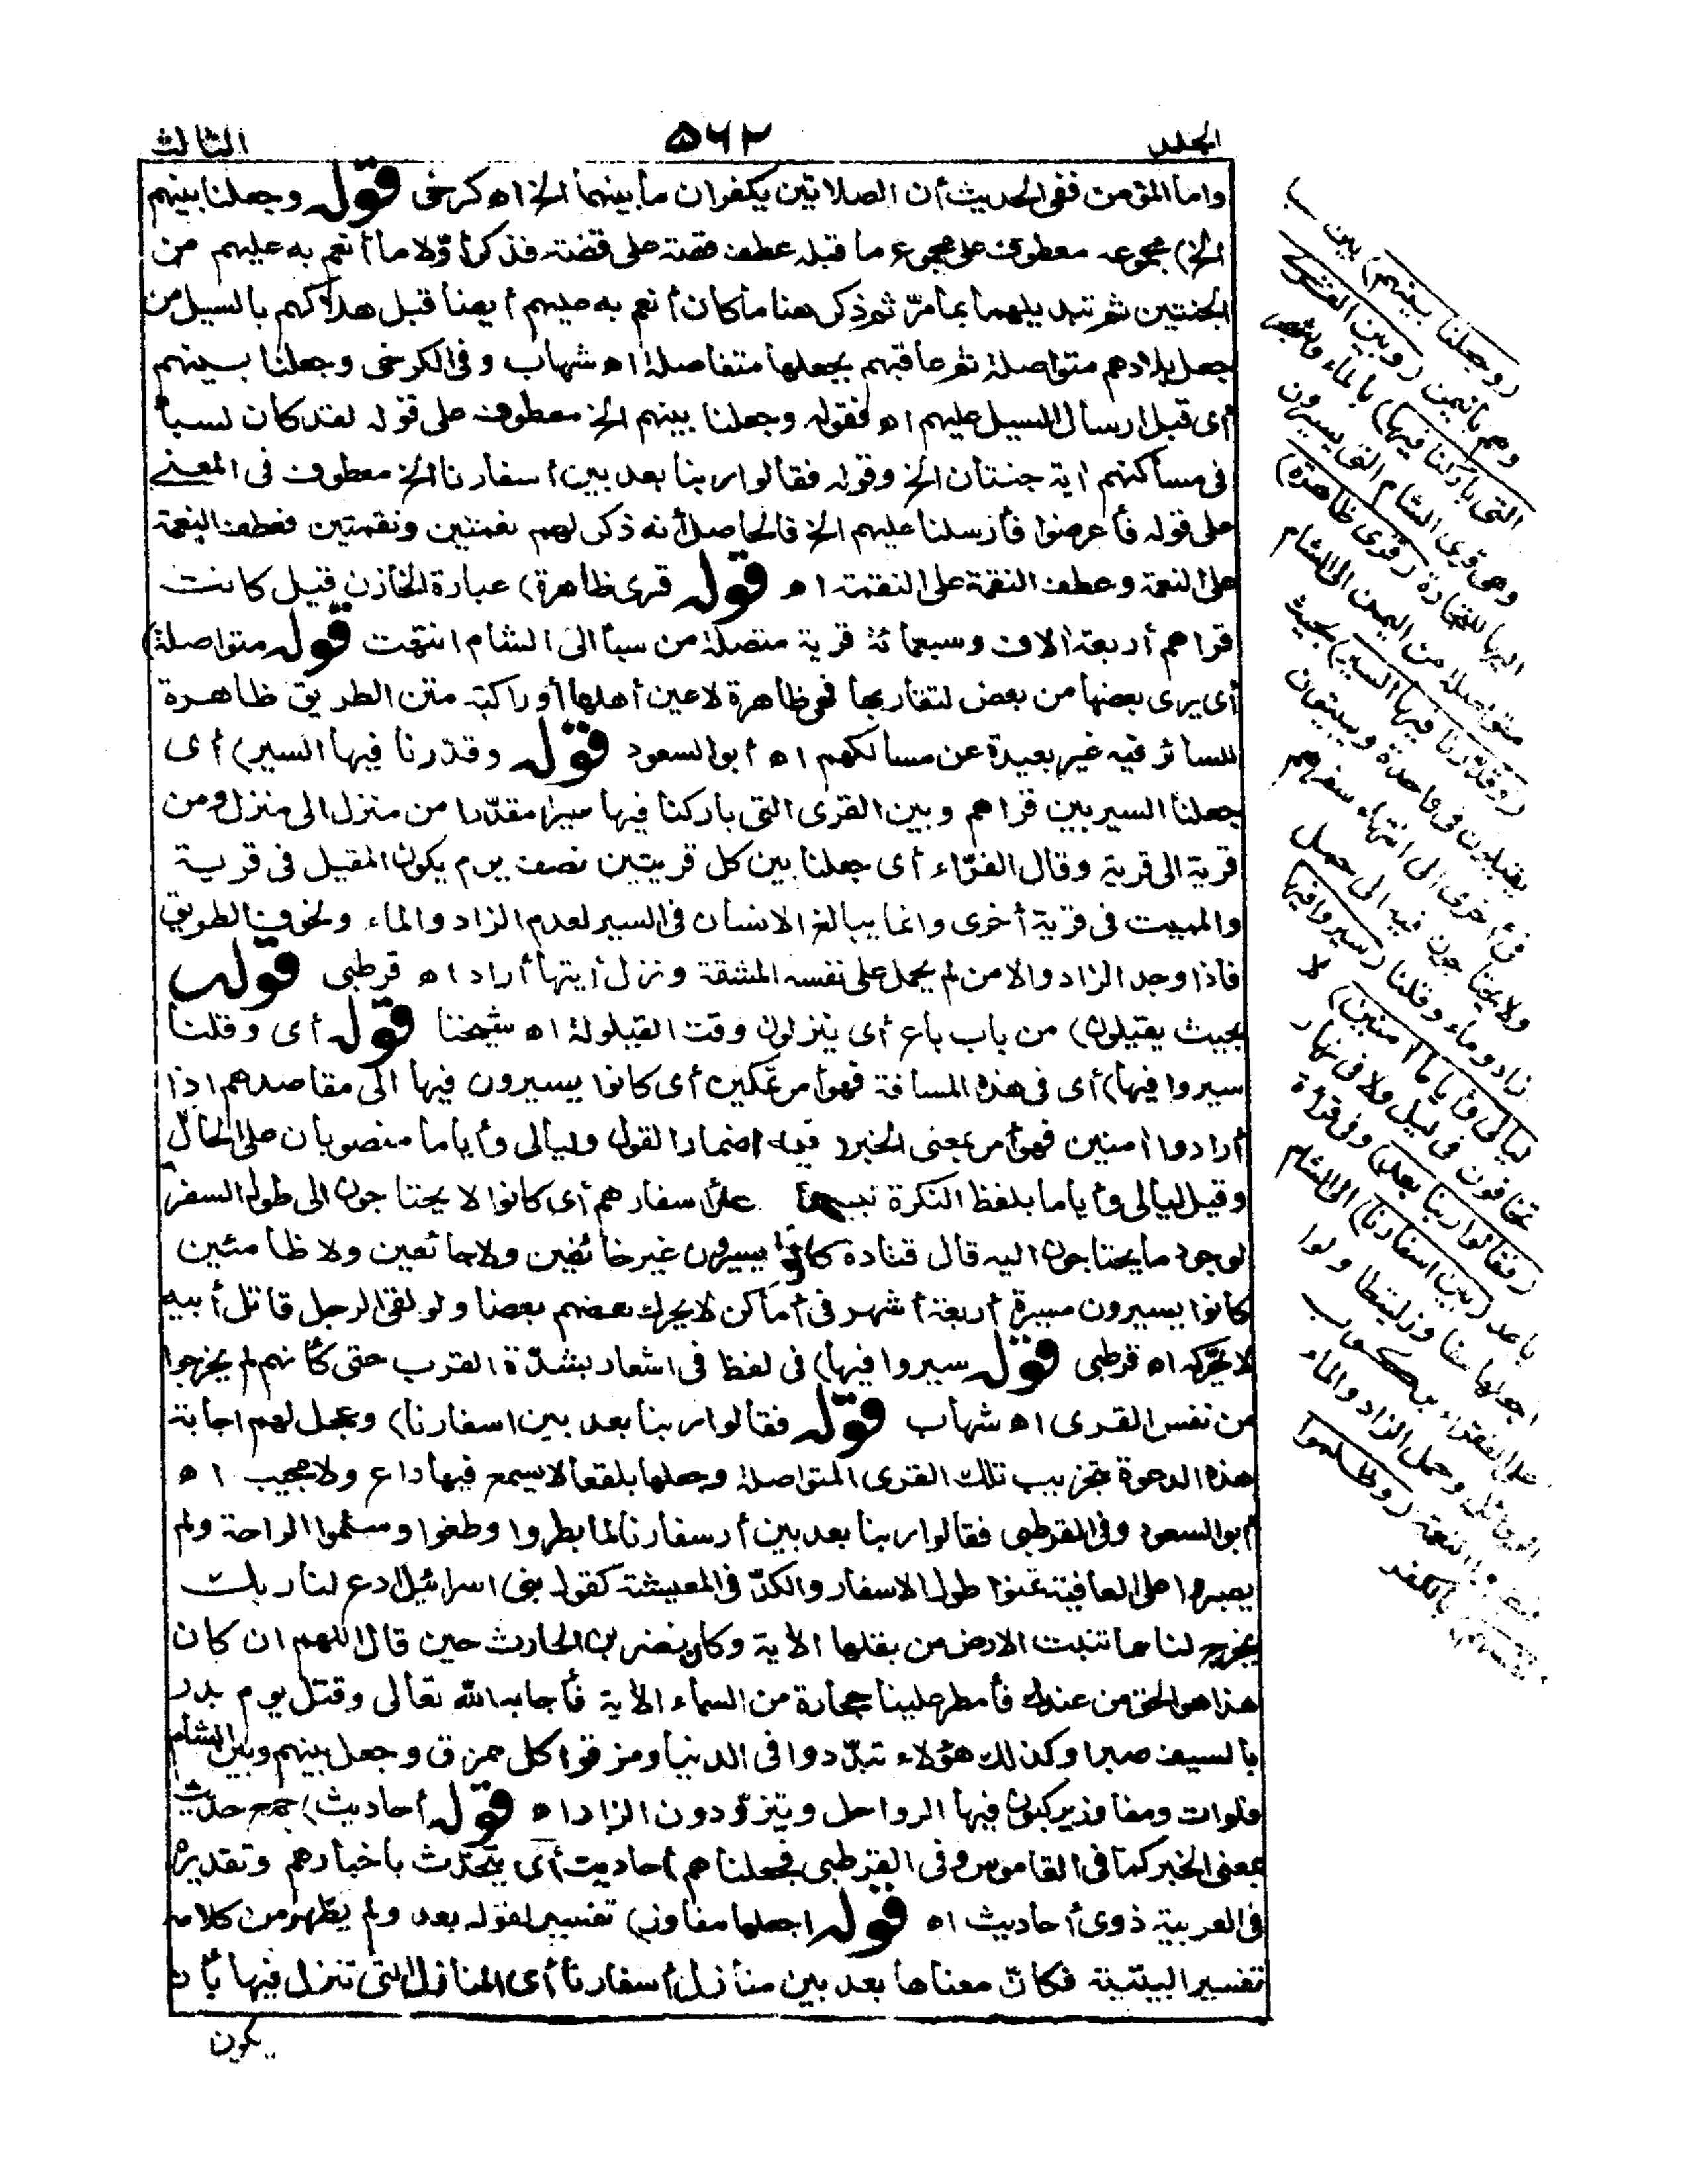 المجلد ٥٦٢ الثالث
واما المؤمن ففى الحديث أن الصلاتين يكفران ما بينهما الخ اه كرخى قوله وجعلنا بينهم
الخ) مجموعه معطوف على مجموع ما قبله عطف قصة على قصة فذكر أوّلا ما أنعم به عليهم من
الجنتين ثم تبديلهما بما مرّ ثم ذكر هنا ما كان أنعم به عليهم أيضا قبل هلاكهم بالسيل من
جعل بلادهم متواصلة ثم عاقبهم بجعلها متفاصلة اه شهاب وفى الكرخى وجعلنا بينهم
أى قبل ارسال السيل عليهم اه فقوله وجعلنا بينهم الخ معطوف على قوله لقد كان لسبأ
فى مساكنهم اية جنتان الخ وقوله فقالوا ربنا بعد بين أسفارنا الخ معطوف فى المعنے
على قوله فأعرضوا فأرسلنا عليهم الخ فالحاصل أنه ذكر لهم نعمتين ونقمتين فعطف النعمة
على النعمة وعطف النقمة على النقمة اه قوله قرى ظاهرة) عبارة الخازن قيل كانت
قراهم أربعة آلاف وسبعمائة قرية متصلة من سبأ الى الشام انتهت قوله متواصلة)
أى يرى بعضها من بعض لتقاربها فهى ظاهرة لاعين أهلها أو راكبة متن الطريق ظاهرة
للسائر فيه غير بعيدة عن مسالكهم اه أبو السعود قوله وقدّرنا فيها السير) أى
جعلنا السير بين قراهم وبين القرى التى باركنا فيها سيرا مقدّرا من منزل الى منزل ومن
قرية الى قرية وقال الفرّاء أى جعلنا بين كل قريتين نصف يوم يكون المقيل فى قرية
والمبيت فى قرية أخرى وانما يبالغ الانسان فى السير لعدم الزاد والماء ولخوف الطريق
فاذا وجد الزاد والامن لم يحمل على نفسه المشقة ونزل أينما أراد اه قرطبى قوله
بحيث يقيلون) من باب باع أى ينزلون وقت القيلولة اه شيخنا قوله أى وقلنا
سيروا فيها) أى فى هذه المسافة فهو أمر تمكين أى كانوا يسيرون فيها الى مقاصدهم اذا
أرادوا امنين فهو أمر بمعنى الخبر وفيه اضمار القول وليالى وأياما منصوبان على الحال
وقيل ليالى وأياما بلفظ النكرة تنبيها على أسفارهم أى كانوا لا يحتاجون الى طول السفر
لوجود ما يحتاجون اليه قال قتادة كانوا يسيرون غير خائفين ولا جائعين ولا ظامئين
كانوا يسيرون مسيرة أربعة أشهر فى أماكن لا يحرك بعضهم بعضا ولو لقى الرجل قاتل أبيه
لا يحرّكه اه قرطبى قوله سيروا فيها) فى لفظ فى اشعار بشدّة القرب حتى كأنهم لم يخرجوا
من نفس القرى اه شهاب قوله فقالوا ربنا بعد بين اسفارنا) وعجل لهم اجابة
هذه الدعوة بتخريب تلك القرى المتواصلة وجعلها بلقعا لا يسمع فيها داع ولا مجيب اه
أبو السعود وفى القرطبى فقالوا ربنا بعد بين أسفارنا لما بطروا وطغوا وسئموا الراحة ولم
يصبروا على العافية تمنوا طول الاسفار والكدّ فى المعيشة كقول بنى اسرائيل ادع لنا ربك
يخرج لنا مما تنبت الارض من بقلها الآية وكان نضر بن الحارث حين قال اللهم ان كان
هذا هو الحق من عندك فأمطر علينا حجارة من السماء الآية فأجابه الله تعالى وقتل يوم بدر
بالسيف صبرا وكذلك هؤلاء تبدّدوا فى الدنيا ومزقوا كل ممزق وجعل بينهم وبين الشام
فلوات ومفاوز يركبون فيها الرواحل ويتزوّدون الزاد اه قوله أحاديث) جمع حديث
بمعنى الخبر كما فى القاموس وفى القرطبى فجعلناهم أحاديث أى يتحدّث بأخبارهم وتقديره
فى العربية ذوى أحاديث اه قوله اجعلها مفاوز) تفسير لقوله بعد ولم يظهر من كلامه
تفسير البيتية فكانّ معناها بعد بين منازل أسفارنا أى المنازل التى تنزل فيها بأن
يكون
(وجعلنا بينهم) بين سبا
وهم باليمن (وبين القرى
التى باركنا فيها) بالماء والشجر
وهى قرى الشام التى يسيرون
اليها للتجارة (قرى ظاهرة)
متواصلة من اليمن الى الشام
(وقدّرنا فيها السير) بحيث
يقيلون فى واحدة ويبيتون
فى أخرى الى انتهاء سفرهم
ولا يحتاجون فيه الى حمل
زاد وماء وقلنا (سيروا فيها
ليالى وأياما امنين) لا
تخافون فى ليل ولا فى نهار
(فقالوا ربنا بعد) وفى قراءة
باعد (بين اسفارنا) الى الشام
اجعلها مفاوز ليتطاولوا
على الفقراء بركوب
الرواحل وحمل الزاد والماء
النعمة (وظلموا
أنفسهم) بالكفر